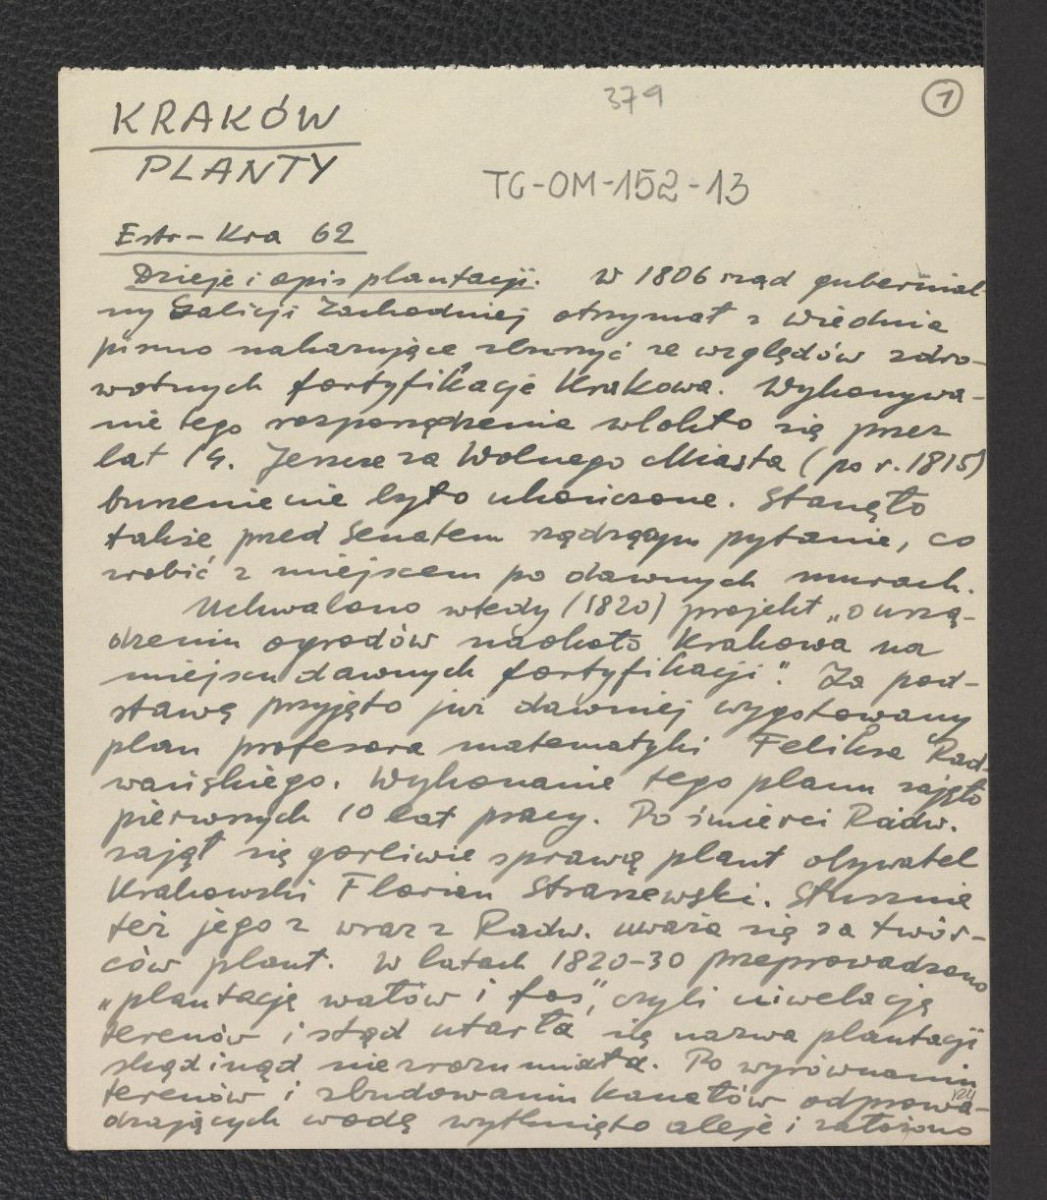 379
1
KRAKÓW
PLANTY
TG-OM-152-13
Estr-Kra 62
Dzieje i opis plantacji. W 1806 rząd gubernial-
ny Galicji Zachodniej otrzymał z Wiednia
pismo nakazujące zburzyć ze względów zdro-
wotnych fortyfikacje Krakowa. Wykonywa-
nie tego rozporządzenia wlokło się przez
lat 14. Jeszcze za Wolnego Miasta (po r. 1815)
burzenie nie było ukończone. Stanęło
także przed Senatem rządzącym pytanie, co
zrobić z miejscem po dawnych murach.
Uchwalono wtedy (1820) projekt „o urzą-
dzeniu ogrodów naokoło Krakowa na
miejscu dawnych fortyfikacji". Za pod-
stawę przyjęto już dawniej wygotowany
plan profesora matematyki Feliksa Rad-
wańskiego. Wykonanie tego planu zajęło
pierwszych 10 lat pracy. Po śmierci Radw.
zajął się gorliwie sprawą plant obywatel
Krakowski Florian Straszewski. Słusznie
też jego z wraz z Radw. uważa się za twór-
ców plant. W latach 1820-30 przeprowadzono
„plantację wałów i fos", czyli niwelację
terenów i stąd utarła się nazwa plantacji
skądinąd niezrozumiała. Po wyrównaniu
terenów i zbudowaniu kanałów odprowa-
dzających wodę wytknięto aleje i założono